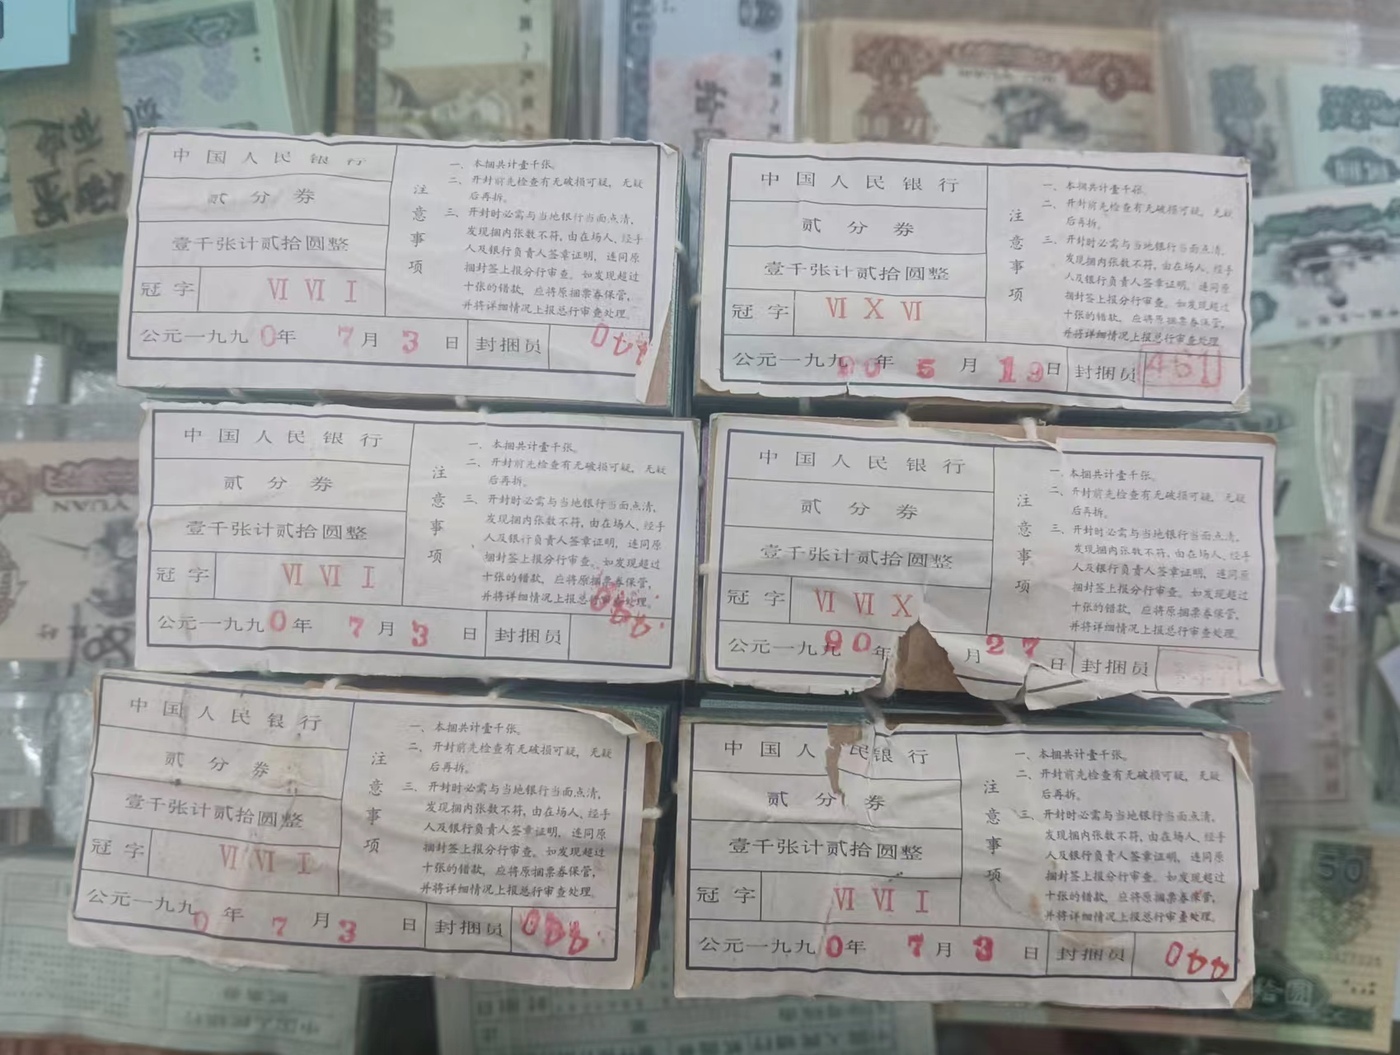 中国人民银行
贰分券
壹千张计贰拾圆整
冠字 Ⅵ Ⅵ Ⅰ
公元一九九0年 7月3日 封捆员 044
注意事项
一、本捆共计壹千张。
二、开封前先检查有无破损可疑，无疑
后再拆。
三、开封时必需与当地银行当面点清，
发现捆内张数不符，由在场人、经手
人及银行负责人签章证明，连同原
捆封签上报分行审查。如发现超过
十张的错款，应将原捆票券保管，
并将详细情况上报总行审查处理。
中国人民银行
贰分券
壹千张计贰拾圆整
冠字 Ⅵ Ⅹ Ⅵ
公元一九九90年 5月19日 封捆员 461
注意事项
一、本捆共计壹千张。
二、开封前先检查有无破损可疑，无疑
后再拆。
三、开封时必需与当地银行当面点清，
发现捆内张数不符，由在场人、经手
人及银行负责人签章证明，连同原
捆封签上报分行审查。如发现超过
十张的错款，应将原捆票券保管，
并将详细情况上报总行审查处理
中国人民银行
贰分券
壹千张计贰拾圆整
冠字 Ⅵ Ⅵ Ⅰ
公元一九九0年 7月3日 封捆员
044
注意事项
一、本捆共计壹千张。
二、开封前先检查有无破损可疑，无疑
后再拆。
三、开封时必需与当地银行当面点清，
发现捆内张数不符，由在场人、经手
人及银行负责人签章证明，连同原
捆封签上报分行审查。如发现超过
十张的错款，应将原捆票券保管，
并将详细情况上报总行审查处理。
中国人民银行
贰分券
壹千张计贰拾圆整
冠字 Ⅵ Ⅵ Ⅹ
公元一九九90年 月27日 封捆员
注意事项
一、本捆共计壹千张。
二、开封前先检查有无破损可疑，无疑
后再拆。
三、开封时必需与当地银行当面点清，
发现捆内张数不符，由在场人、经手
人及银行负责人签章证明，连同原
捆封签上报分行审查。如发现超过
十张的错款，应将原捆票券保管，
并将详细情况上报总行审查处理。
中国人民银行
贰分券
壹千张计贰拾圆整
冠字 Ⅵ Ⅵ Ⅰ
公元一九九0年 7月3日 封捆员 044
注意事项
一、本捆共计壹千张。
二、开封前先检查有无破损可疑，无疑
后再拆。
三、开封时必需与当地银行当面点清，
发现捆内张数不符，由在场人、经手
人及银行负责人签章证明，连同原
捆封签上报分行审查。如发现超过
十张的错款，应将原捆票券保管，
并将详细情况上报总行审查处理。
中国人民银行
贰分券
壹千张计贰拾圆整
冠字 Ⅵ Ⅵ Ⅰ
公元一九九0年 7月3日 封捆员 044
注意事项
一、本捆共计壹千张。
二、开封前先检查有无破损可疑，无疑
后再拆。
三、开封时必需与当地银行当面点清，
发现捆内张数不符，由在场人、经手
人及银行负责人签章证明，连同原
捆封签上报分行审查。如发现超过
十张的错款，应将原捆票券保管，
并将详细情况上报总行审查处理。
YUAN
50
拾圆